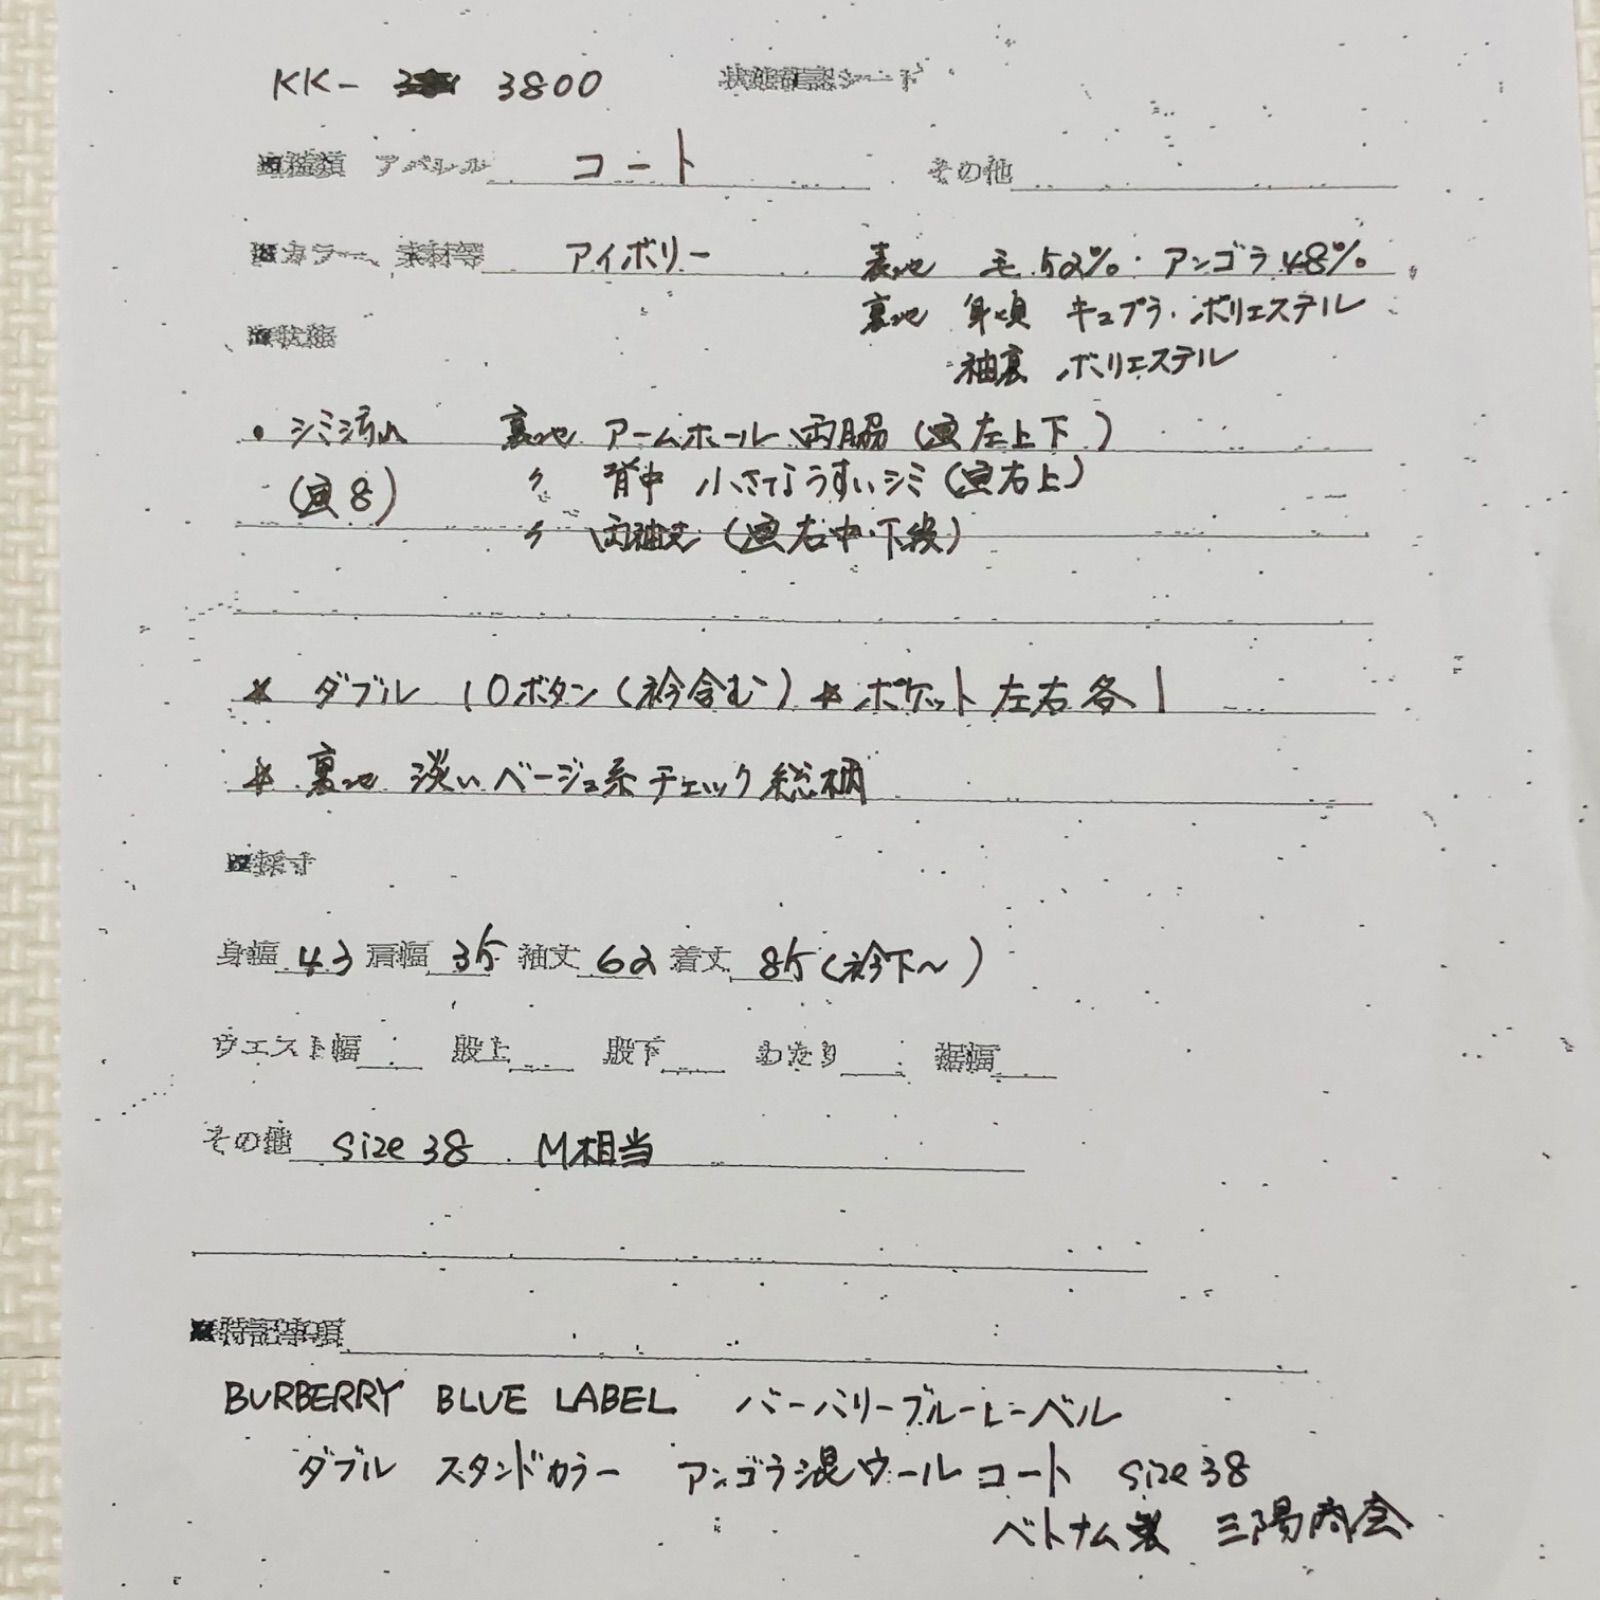 KK- 3800 状態確認シート
■種類 アパレル コート その他
■カラー、素材等 アイボリー 表地 毛 52%・アンゴラ 48%
裏地 身頃 キュプラ・ポリエステル
■状態
袖裏 ポリエステル
・シミ汚れ 裏地 アームホール両脇(画左上下)
(画8) 〃 背中 小さなうすいシミ(画右上)
〃 両袖先(画右中・下段)
* ダブル 10ボタン(衿含む) * ポケット左右各1
* 裏地 淡いベージュ系チェック総柄
■採寸
身幅 43 肩幅 35 袖丈 62 着丈 85(衿下~)
ウエスト幅 股上 股下 わたり 裾幅
その他 size 38 M相当
■特記事項
BURBERRY BLUE LABEL バーバリーブルーレーベル
ダブル スタンドカラー アンゴラ混ウールコート size 38
ベトナム製 三陽商会